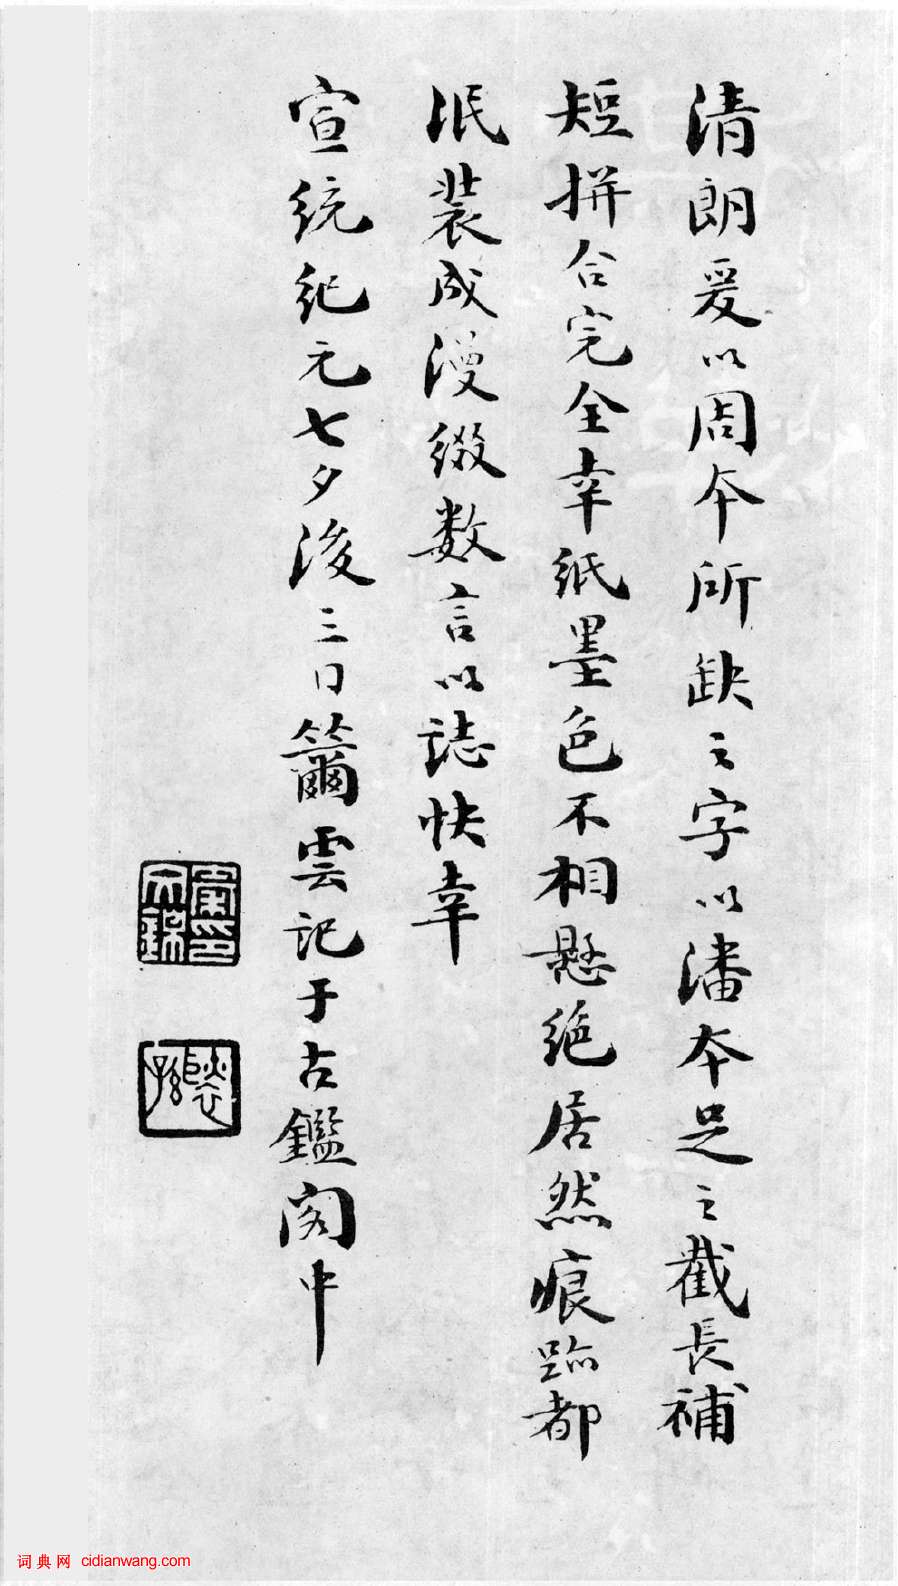 清朗爰以周本所缺之字以潘本足之截長補
短拼合完全幸紙墨色不相懸絶居然痕跡都
泯裝成漫綴数言以誌快幸
宣統紀元七夕後三日籋雲記于古鑑閣中
词典网 cidianwang.com